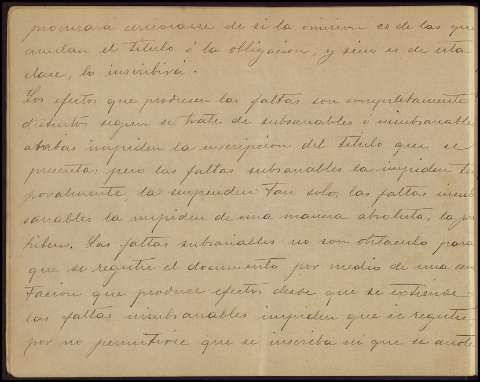 procurará cerciorarse de si la omision es de las que
anulan el título ó la obligacion, y si no es de esta
clase, lo inscribirá.
Los efectos que producen las faltas son completamente
distintos segun se trate de subsanables ó insubsanable
ambas impiden la inscripcion del título que se
presenta; pero las faltas subsanables la impiden tem
poralmente la suspenden tan solo, las faltas insub
sanables la impiden de una manera absoluta, la pro
hiben. Las faltas subsanables no son obstáculo para
que se registre el documento por medio de una ano
tacion que produce efectos desde que se extiende
las faltas insubsanables impiden que se registre
por no permitirse que se inscriba ni que se anote